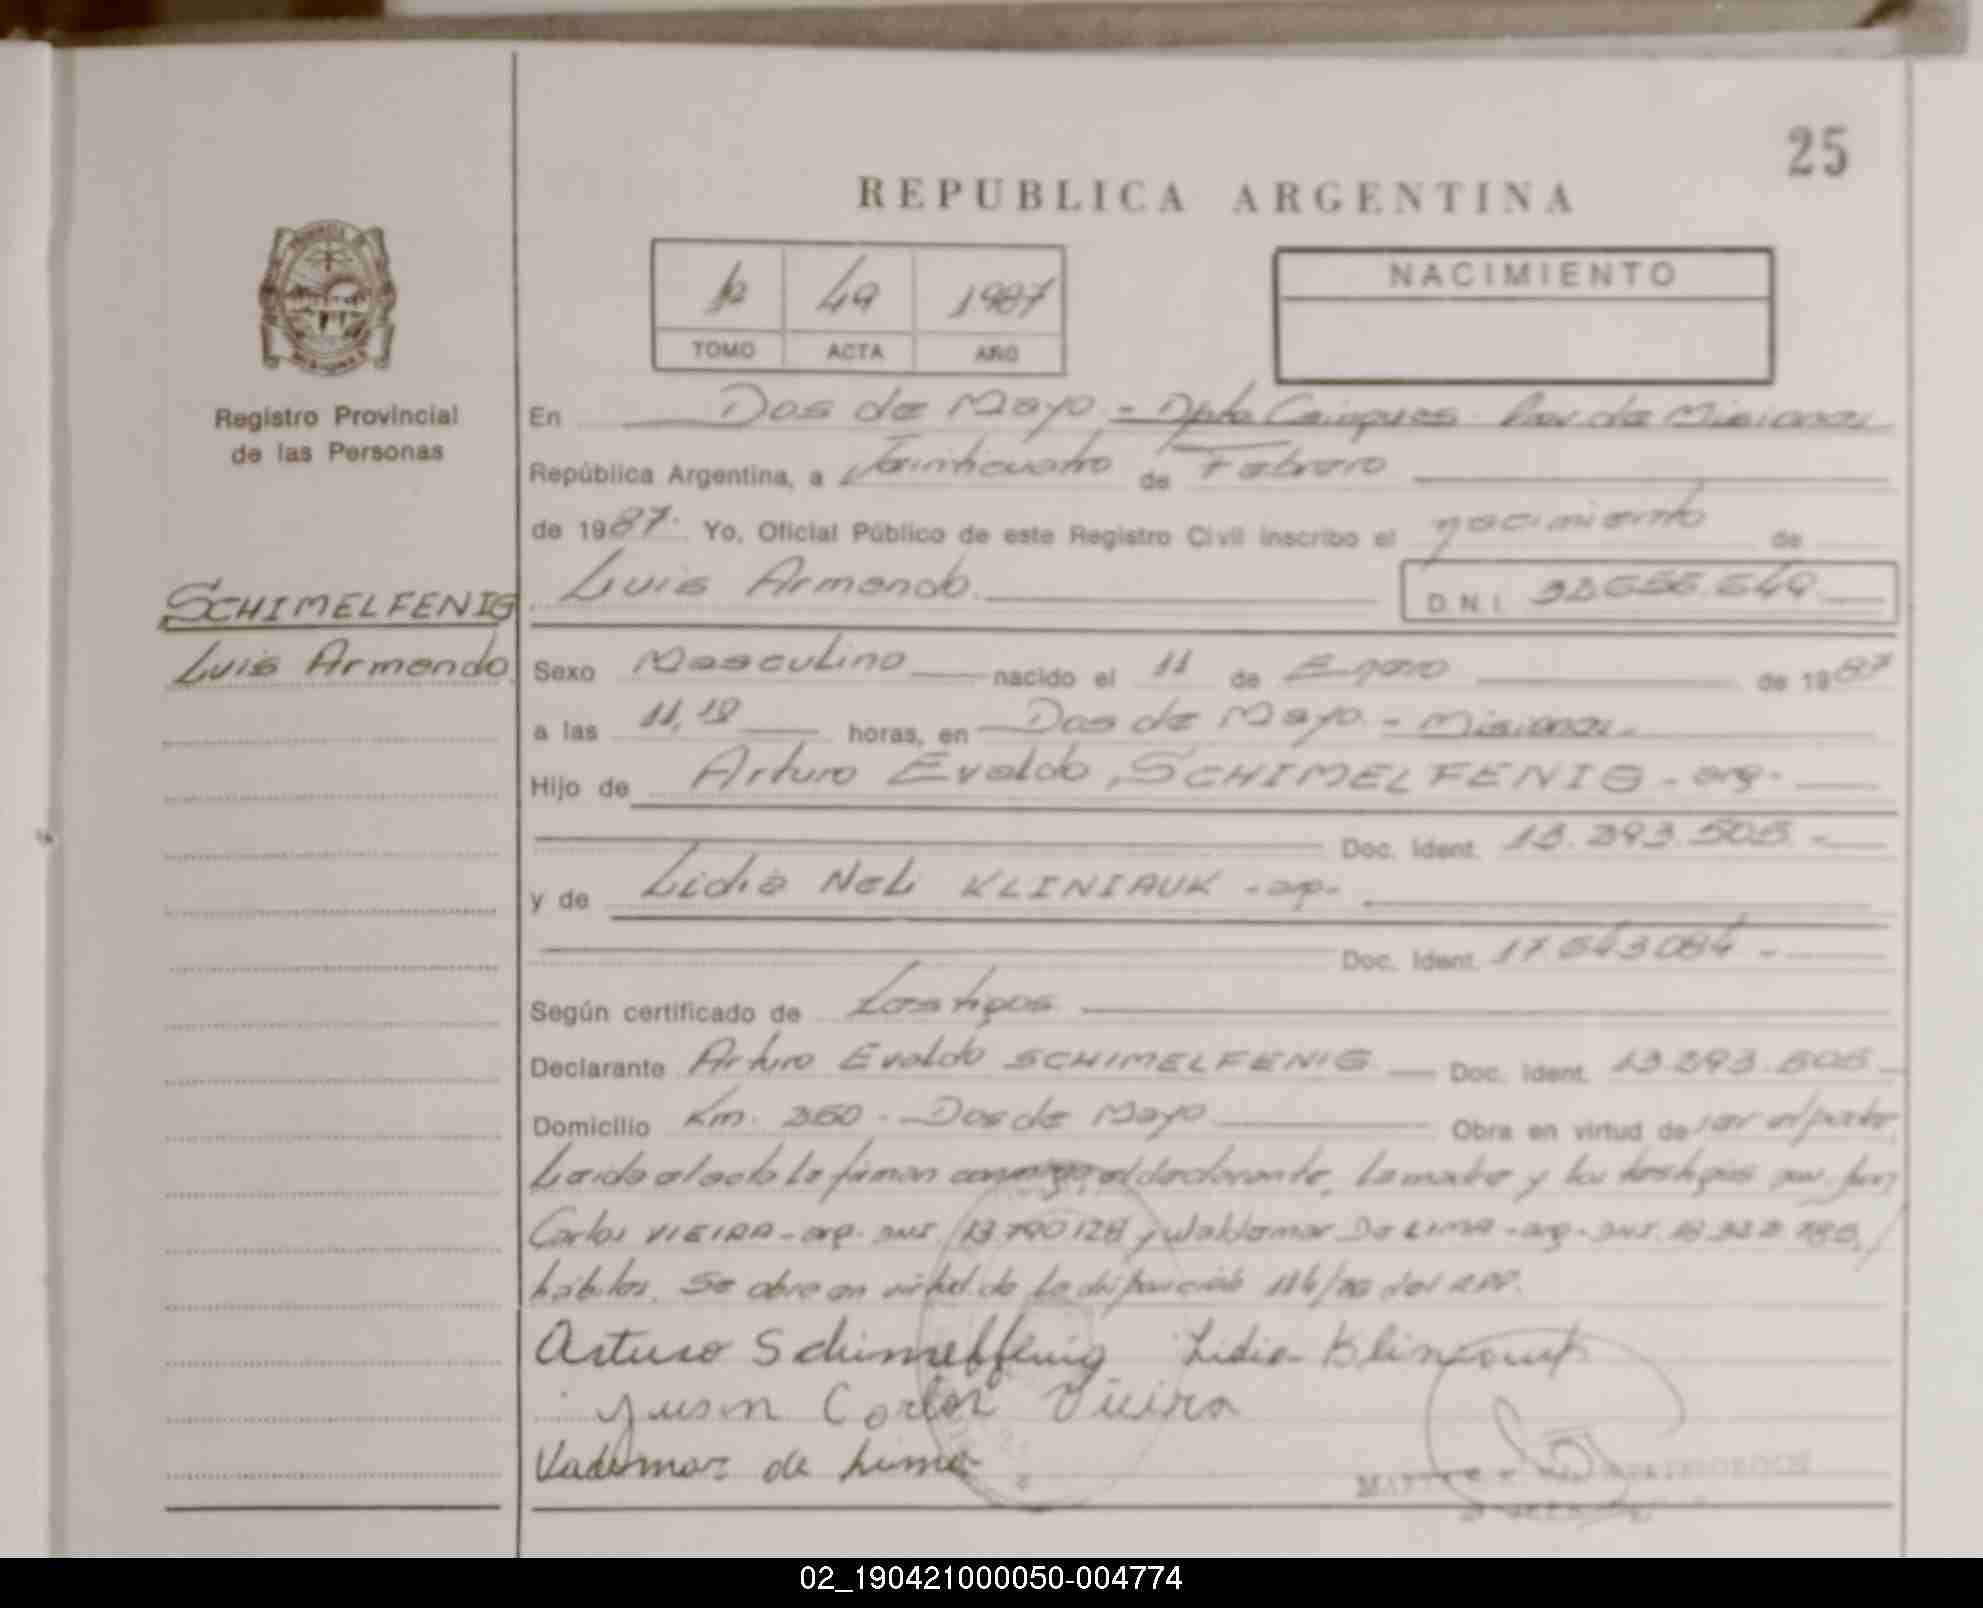 25
REPUBLICA ARGENTINA
49 1987
TOMO ACTA AÑO
NACIMIENTO
Registro Provincial
de las Personas
En Dos de Mayo - Dpto Cainguas Prov. de Misiones
República Argentina, a Veinticuatro de Febrero
de 1987. Yo, Oficial Público de este Registro Civil inscribo el nacimiento de
SCHIMELFENIG
Luis Armando
Luis Armando. D.N.I.
Sexo Masculino nacido el 11 de Enero de 1987
a las 11, horas, en Dos de Mayo. - Misiones.
Hijo de Arturo Evaldo, SCHIMELFENIG - arg.
Doc. Ident. 13.393.505. -
y de Lidia Neli KLINIAUK - arg -
Doc. Ident. 17.643.084 -
Según certificado de Testigos.
Declarante Arturo Evaldo SCHIMELFENIG Doc. Ident. 13.393.505
Domicilio Km. 350 - Dos de Mayo Obra en virtud de ser el padre
Leida el acta la firman conmigo, el declarante, la madre y los testigos
Carlos VIEIRA - arg. 13.790128 y Waldemar De LIMA - arg -
hábiles. Se obra en virtud de la disposición del RPP.
Arturo Schimelffenig Lidia
Juan Carlos Vieira
Valdemar de Lima
02_190421000050-004774